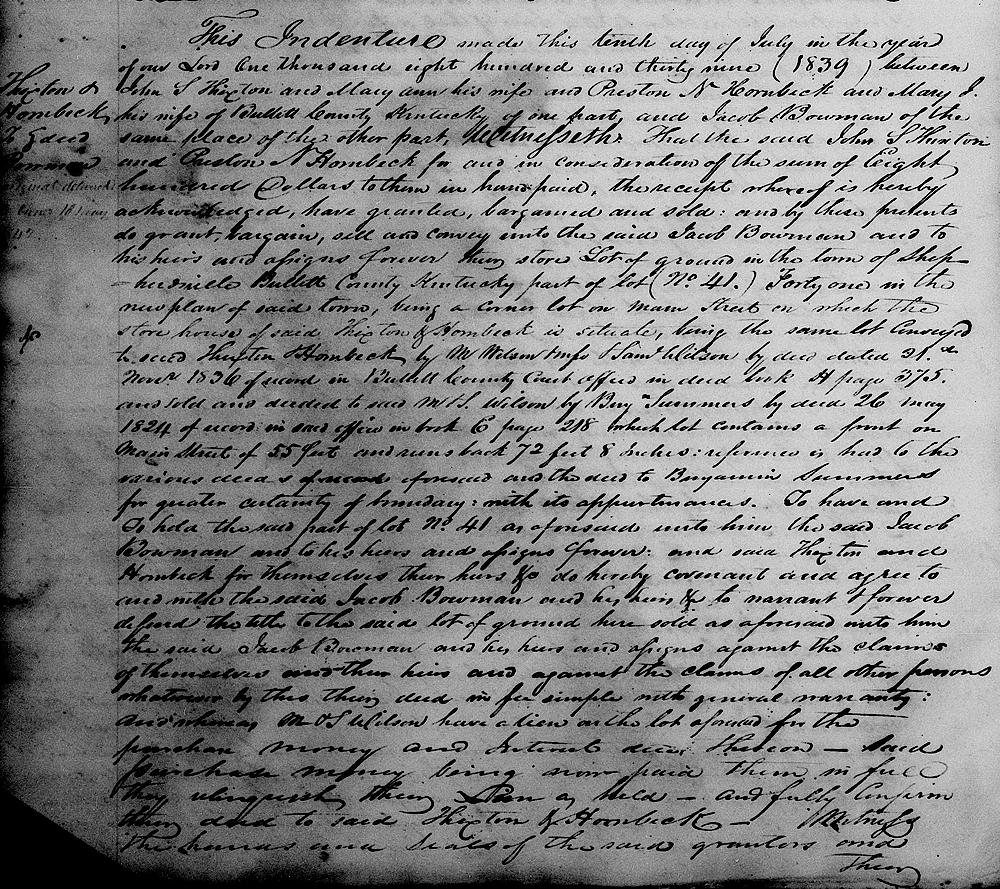 Thixton &
Hornbeck
To } deed
Bowman
This Indenture made this tenth day of July in the year
of our Lord One thousand eight hundred and thirty nine (1839) between
John S Thixton and Mary ann his wife and Preston N Hornbeck and Mary J.
his wife of Bullitt County Kentucky of one part, and Jacob Bowman of the
same place of the other part, Witnesseth: That the said John S Thixton
and Preston N Hornbeck for and in consideration of the sum of Eight
hundred Dollars to them in hand paid, the receipt whereof is hereby
acknowledged, have granted, bargained and sold: and by these presents
do grant, bargain, sell and convey unto the said Jacob Bowman and to
his heirs and assigns forever their store Lot of ground in the town of Shep-
-herdsville Bullitt County Kentucky part of lot (No. 41.) Forty one in the
new plan of said town, being a corner lot on main Street on which the
store house of said Thixton & Hornbeck is situate, being the same lot Conveyed
to said Thixton & Hornbeck by M Wilson & wife & Saml Wilson by deed dated 21.st
Novr 1836 of record in Bullitt County Court office in deed book H page 375.
and sold and deeded to said M & S. Wilson by Benjn Summers by deed 26 may
1824 of record in said office in book E page 218 which lot contains a front on
Main Street of 55 feet and runs back 72 feet 8 inches: reference is had to the
various deeds of record aforesaid and the deed to Benjamin Summers
for greater certainty of boundary: with its appurtenances. To have and
To hold the said part of lot No. 41 as aforesaid unto him the said Jacob
Bowman and to his heirs and assigns forever: and said Thixton and
Hornbeck for themselves their heirs &c do hereby covenant and agree to
and with the said Jacob Bowman and his heirs &c to warrant & forever
defend the title to the said lot of ground here sold as aforesaid unto him
the said Jacob Bowman and his heirs and assigns against the claims
of themselves and their heirs and against the claims of all other persons
whatsoever by this their deed in fee simple with general warranty:
And whereas M & S Wilson have a lien on the lot aforesaid for the
purchase money and Interest due thereon — Said
purchase money being now paid them in full
they relinquish their Lien as held — and fully Confirm
their deed to said Thixton & Hornbeck — Witness
the hands and Seals of the said grantors and
their